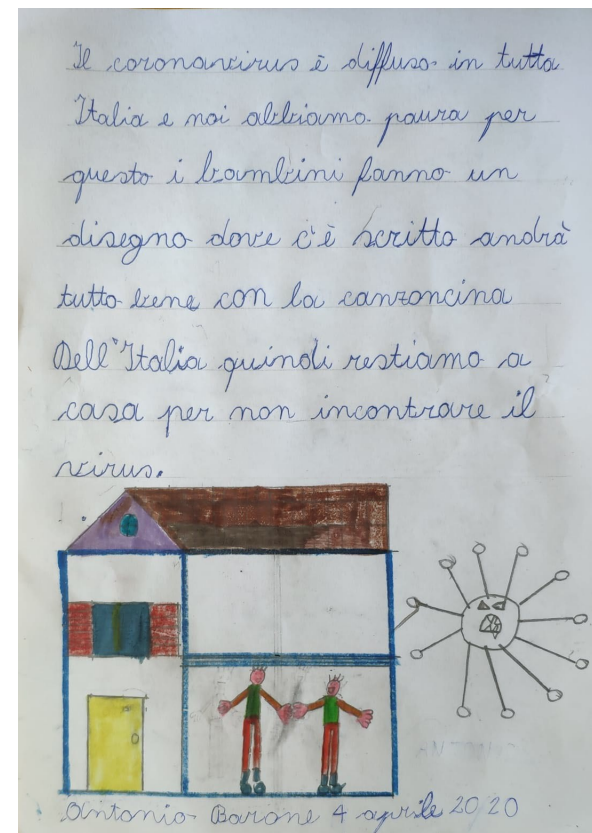 Il coronavirus è diffuso in tutta
Italia e noi abbiamo paura per
questo i bambini fanno un
disegno dove c'è scritto andrà
tutto bene con la canzoncina
Dell'Italia quindi restiamo a
casa per non incontrare il
virus.
Antonio Barone 4 aprile 2020